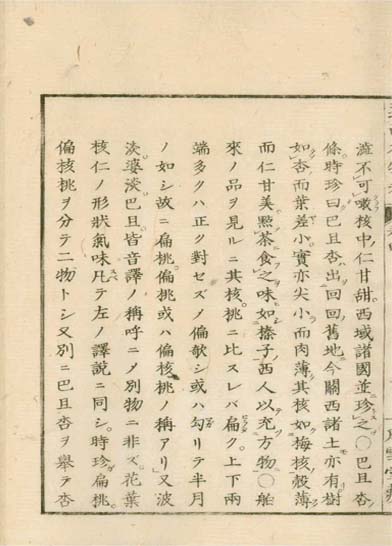 澁不可噉核中仁甘甜。西域諸國並珍之〇巴且杏
條。時珍曰巴且杏。出回回舊地。今關西諸土亦有樹
如杏而葉差小。實亦尖小而肉薄。其核如梅核。殼薄
而仁甘美。點茶食之。味如榛子。西人以充方物〇舶
來ノ品ヲ見ルニ其核。桃ニ比スレバ扁ク。上下兩
端多クハ正ク對セズノ偏欹シ或ハ勾リテ半月
ノ如シ故ニ扁桃。偏桃或ハ偏核桃ノ稱アリ」又波
淡。婆淡。巴旦。皆音譯ノ稱呼ニメ別物ニ非ズ。花葉
核仁ノ形狀氣味凡テ左ノ譯說ニ同シ。時珍。扁桃。
偏核桃ヲ分テ二物トシ又別ニ巴且杏ヲ舉テ杏